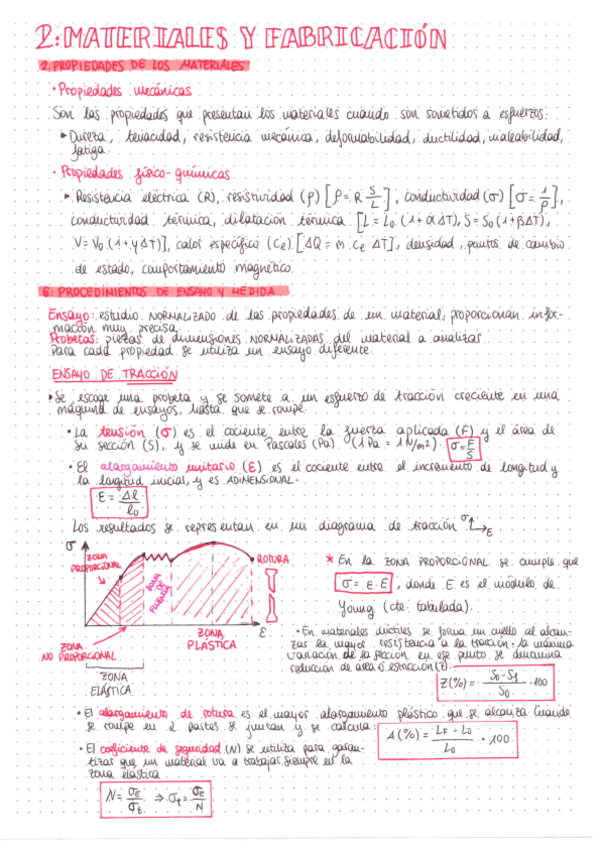 2: MATERIALES Y FABRICACIÓN
2. PROPIEDADES DE LOS MATERIALES
• Propiedades mecánicas
Son las propiedades que presentan los materiales cuando son sometidos a esfuerzos:
▸ Dureza, tenacidad, resistencia mecánica, deformabilidad, ductilidad, maleabilidad,
fatiga.
• Propiedades físico-químicas
▸ Resistencia eléctrica (R), resistividad (ρ) [ρ = R S/L], conductividad (σ) [σ = 1/ρ],
conductividad térmica, dilatación térmica [L = L₀ (1 + αΔT), S = S₀ (1 + βΔT),
V = V₀ (1 + γΔT)], calor específico (Ce) [ΔQ = m · Ce ΔT], densidad, puntos de cambio
de estado, comportamiento magnético.
6: PROCEDIMIENTOS DE ENSAYO Y MEDIDA
Ensayo: estudio NORMALIZADO de las propiedades de un material, proporcionan infor-
mación muy precisa.
Probetas: piezas de dimensiones NORMALIZADAS del material a analizar.
Para cada propiedad se utiliza un ensayo diferente.
ENSAYO DE TRACCIÓN
• Se escoge una probeta y se somete a un esfuerzo de tracción creciente en una
máquina de ensayos, hasta que se rompe.
• La tensión (σ) es el cociente entre la fuerza aplicada (F) y el área de
su sección (S), y se mide en Pascales (Pa) (1 Pa = 1 N/m²). σ = F/S
• El alargamiento unitario (ε) es el cociente entre el incremento de longitud y
la longitud inicial, y es ADIMENSIONAL.
ε = Δl/l₀
Los resultados se representan en un diagrama de tracción σ ε
σ
ZONA
PROPORCIONAL
ZONA
DE
FLUENCIA
ROTURA
ε
ZONA
NO PROPORCIONAL
ZONA
PLASTICA
ZONA
ELÁSTICA
* En la ZONA PROPORCIONAL se cumple que
σ = ε · E, donde E es el módulo de
Young (cte. tabulada).
• En materiales dúctiles se forma un cuello al alcan-
zas la mayor resistencia a la tracción. La máxima
variación de la sección en ese punto se denomina
reducción de área o estricción (Z):
Z(%) = S₀ - S₁/S₀ · 100
• El alargamiento de rotura es el mayor alargamiento plástico que se alcanza. Cuando
se rompe en 2 partes se juntan y se calcula: A (%) = LF - L₀/L₀ · 100
• El coeficiente de seguridad (N) se utiliza para garan-
tizar que un material va a trabajar siempre en la
zona elástica.
N = σE/σt ⇒ σt = σE/N